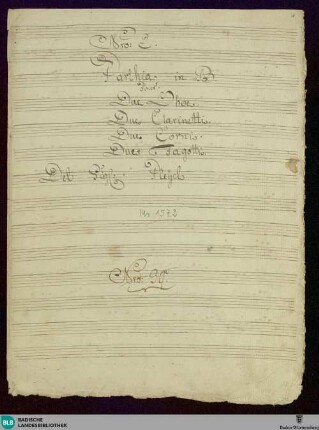 Nro: 2.
Parthia in B
Due Oboe
Due Clarinetti
Due Corni
Due Fagotti
Del Sigr: Pleyel
Hs 1372
Nro: 90
BLB BADISCHE
LANDESBIBLIOTHEK
Baden-Württemberg